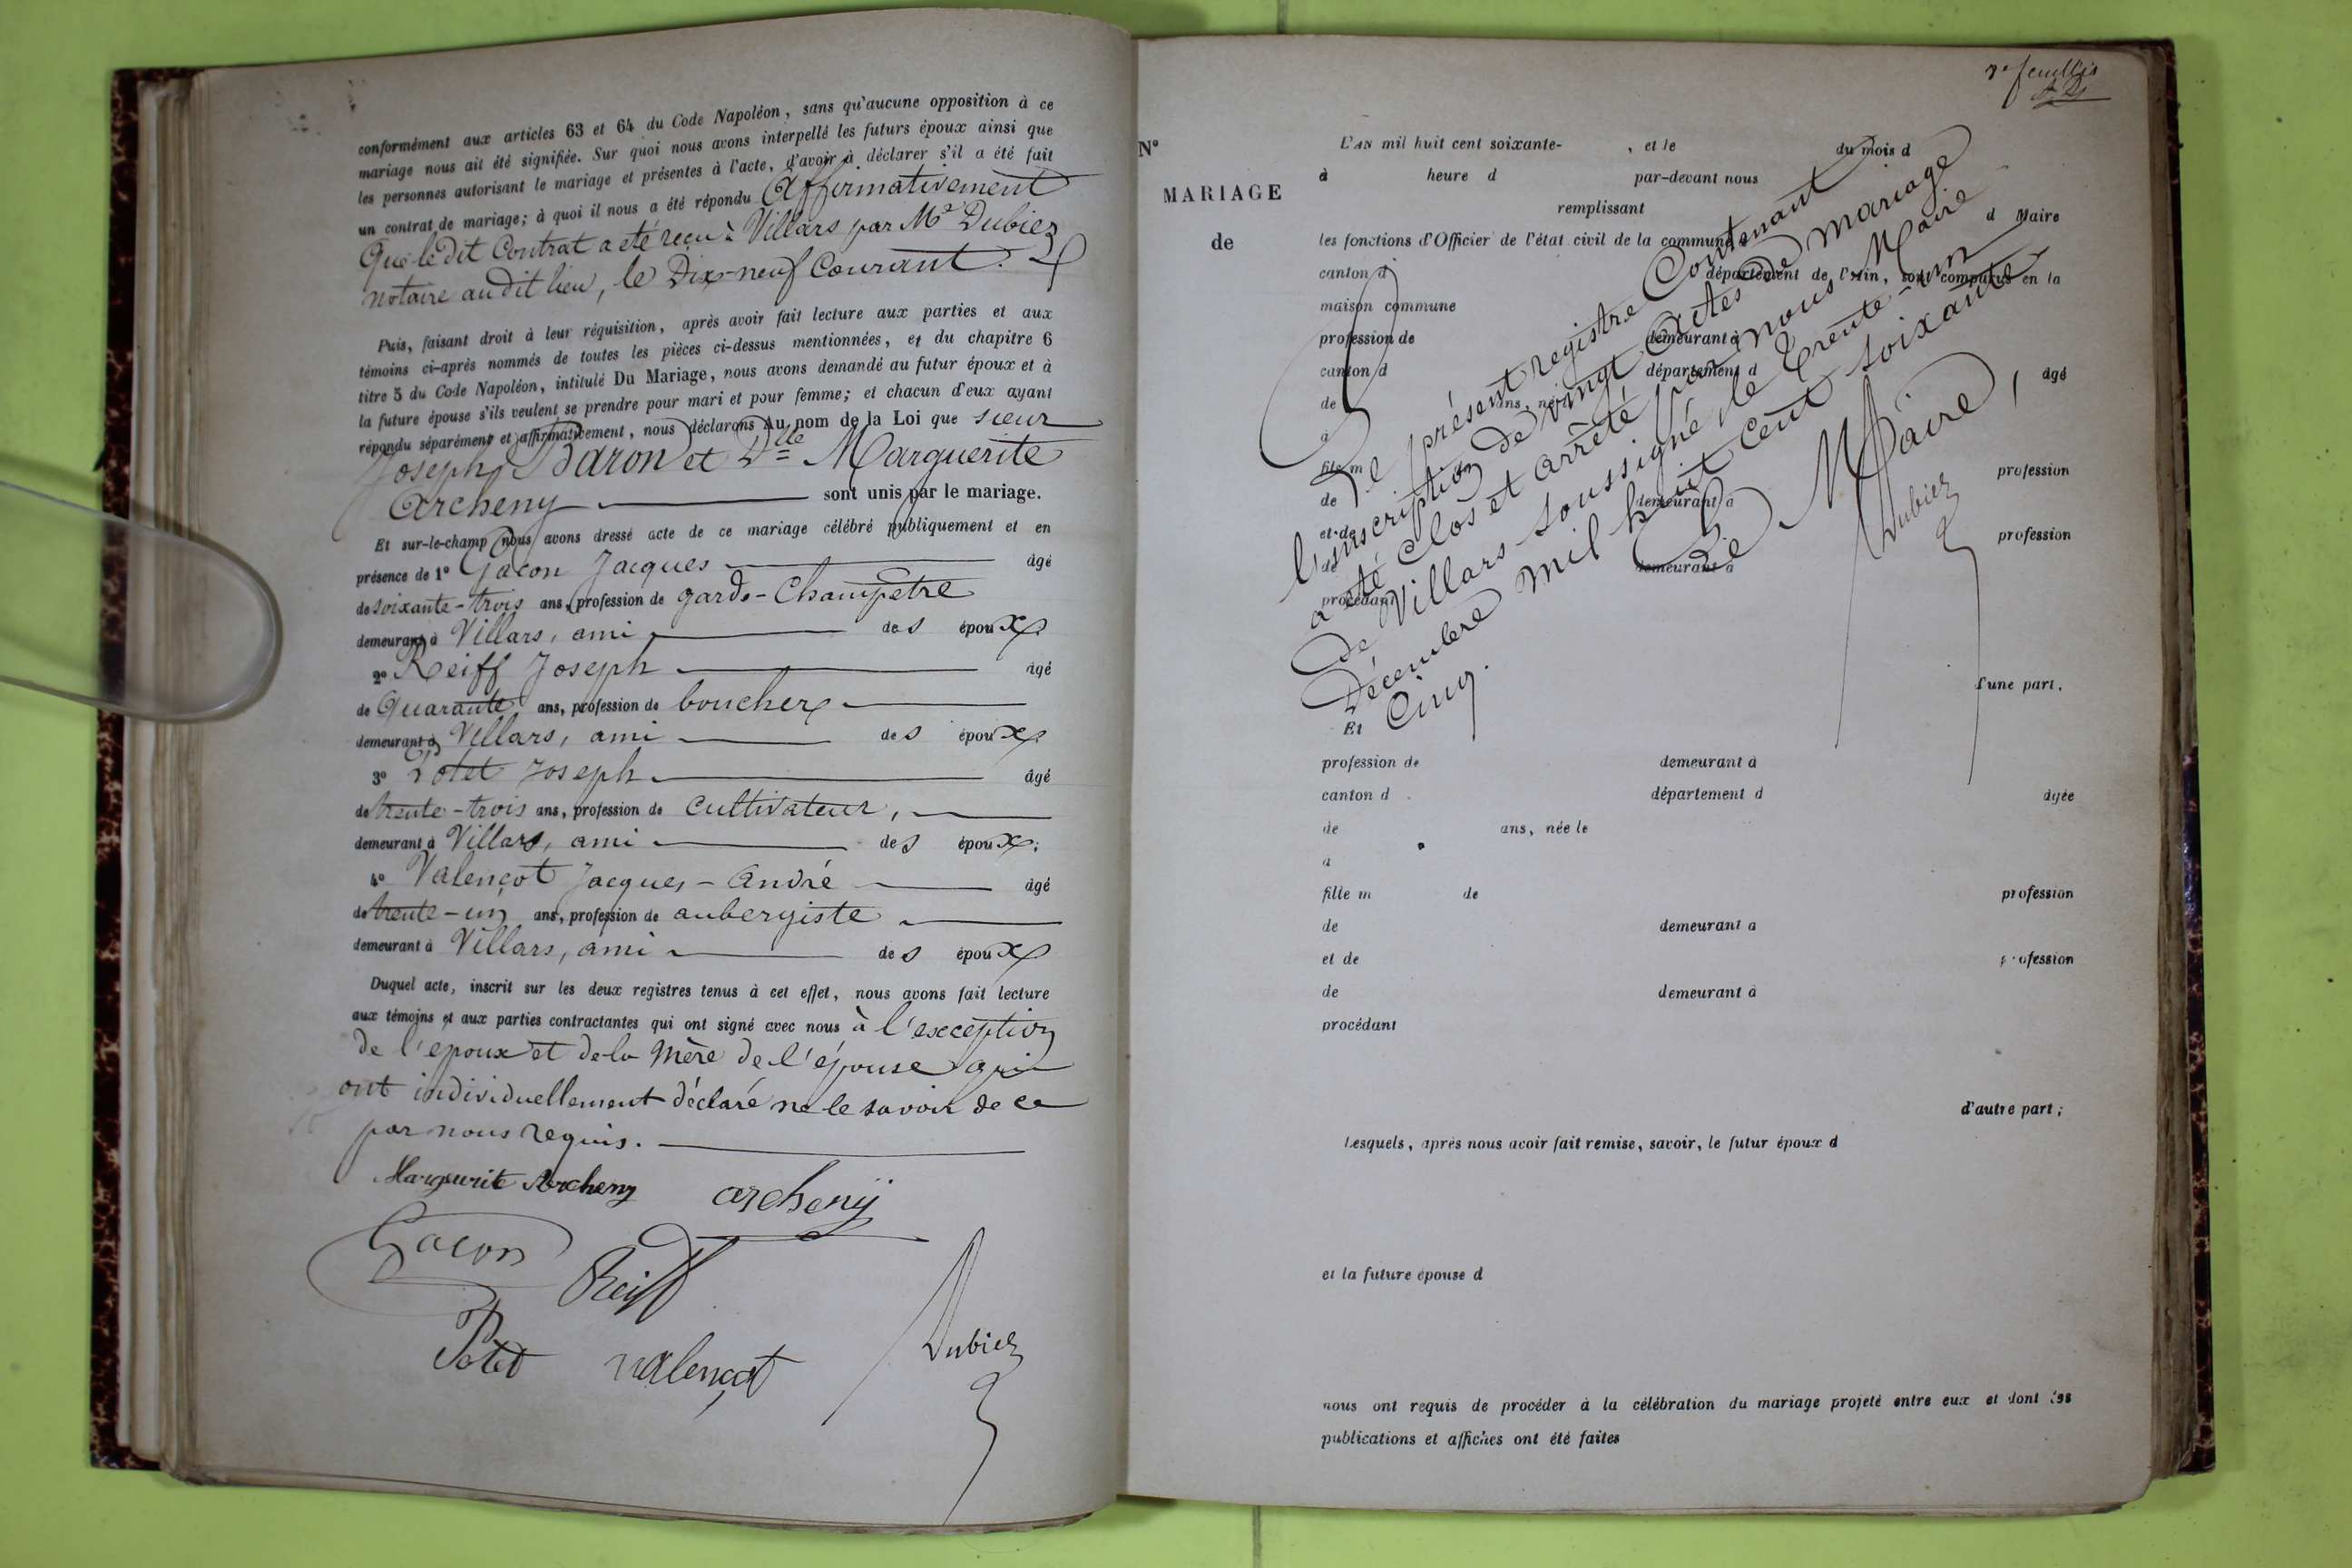 conformément aux articles 63 et 64 du Code Napoléon, sans qu'aucune opposition à ce
mariage nous ait été signifiée. Sur quoi nous avons interpellé les futurs époux ainsi que
les personnes autorisant le mariage et présentes à l'acte, d'avoir à déclarer s'il a été fait
un contrat de mariage; à quoi il nous a été répondu Affirmativement
Que le dit Contrat a été reçu à Villars par Me Dubiez
notaire audit lieu, le Dix-neuf Courant.
Puis, faisant droit à leur réquisition, après avoir fait lecture aux parties et aux
témoins ci-après nommés de toutes les pièces ci-dessus mentionnées, et du chapitre 6
titre 5 du Code Napoléon, intitulé Du Mariage, nous avons demandé au futur époux et à
la future épouse s'ils veulent se prendre pour mari et pour femme; et chacun d'eux ayant
répondu séparément et affirmativement, nous déclarons Au nom de la Loi que sieur
Joseph Baron et Dlle Marguerite
Archeny sont unis par le mariage.
Et sur-le-champ nous avons dressé acte de ce mariage célébré publiquement et en
présence de 1° Gacon Jacques âgé
de soixante-trois ans, profession de garde-Champêtre
demeurant à Villars, ami des époux.
2° Reiff Joseph âgé
de Quarante ans, profession de boucher
demeurant à Villars, ami des époux.
3° Potet Joseph âgé
de trente-trois ans, profession de cultivateur,
demeurant à Villars, ami des époux;
4° Valençot Jacques-André âgé
de trente-un ans, profession de aubergiste
demeurant à Villars, ami des époux
Duquel acte, inscrit sur les deux registres tenus à cet effet, nous avons fait lecture
aux témoins et aux parties contractantes qui ont signé avec nous à l'exception
de l'époux et de la mère de l'épouse qui
ont individuellement déclaré ne le savoir de ce
par nous requis.
Marguerite Archeny archenÿ
Gacon
Reiff
Potet valençot Dubiez
7e feuillet
N°
MARIAGE
de
L'AN mil huit cent soixante- , et le du mois d
à heure d par-devant nous
remplissant
d Maire
les fonctions d'Officier de l'état civil de la commune
canton d département de l'Ain, sont comparus en la
maison commune
profession de demeurant à
canton d département d âgé
de ans, né
à
fils m profession
de demeurant à
et de profession
de demeurant à
procédant
Le présent registre Contenant
l'inscription de vingt Actes de mariage
a été clos et arrêté par nous Maire
de Villars soussigné, le Trente-un
Décembre mil huit cent soixante
Cinq.
Le Maire,
Dubiez
d'une part.
Et
profession de demeurant à
canton d département d âgée
de ans, née le
à
fille m de profession
de demeurant à
et de profession
de demeurant à
procédant
d'autre part;
Lesquels, après nous avoir fait remise, savoir, le futur époux d
et la future épouse d
nous ont requis de procéder à la célébration du mariage projeté entre eux et dont les
publications et affiches ont été faites